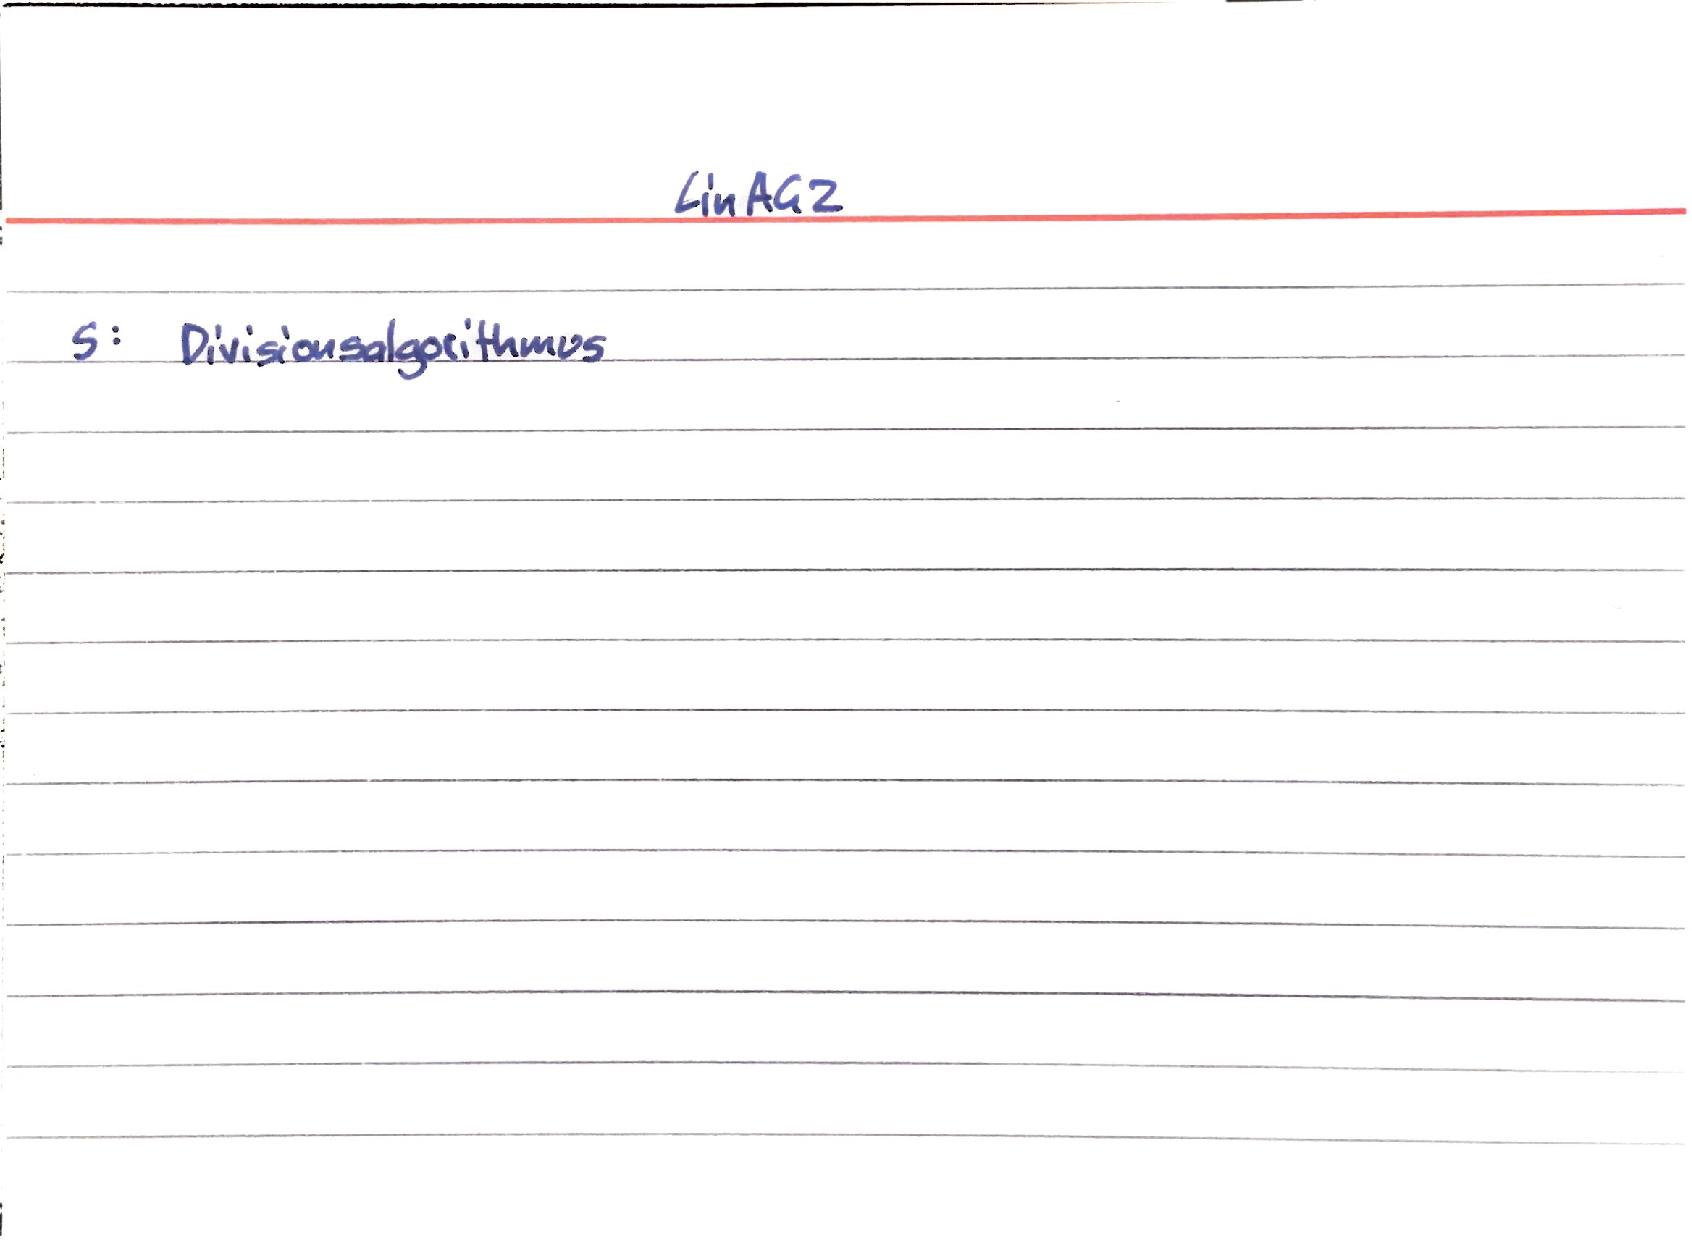 LinAG2
S: Divisionsalgorithmus